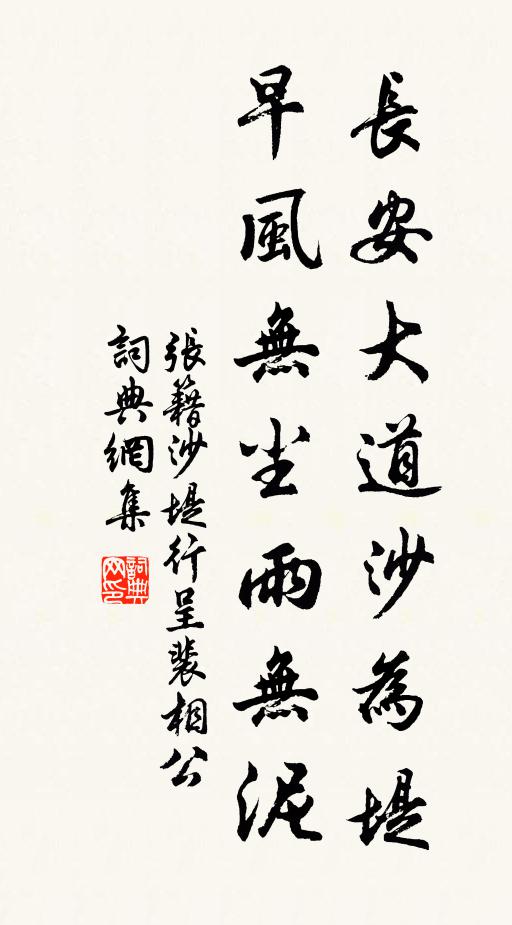 長安大道沙為堤
早風無尘雨無泥
張籍沙堤行呈裴相公
詞典網集
詞典网印